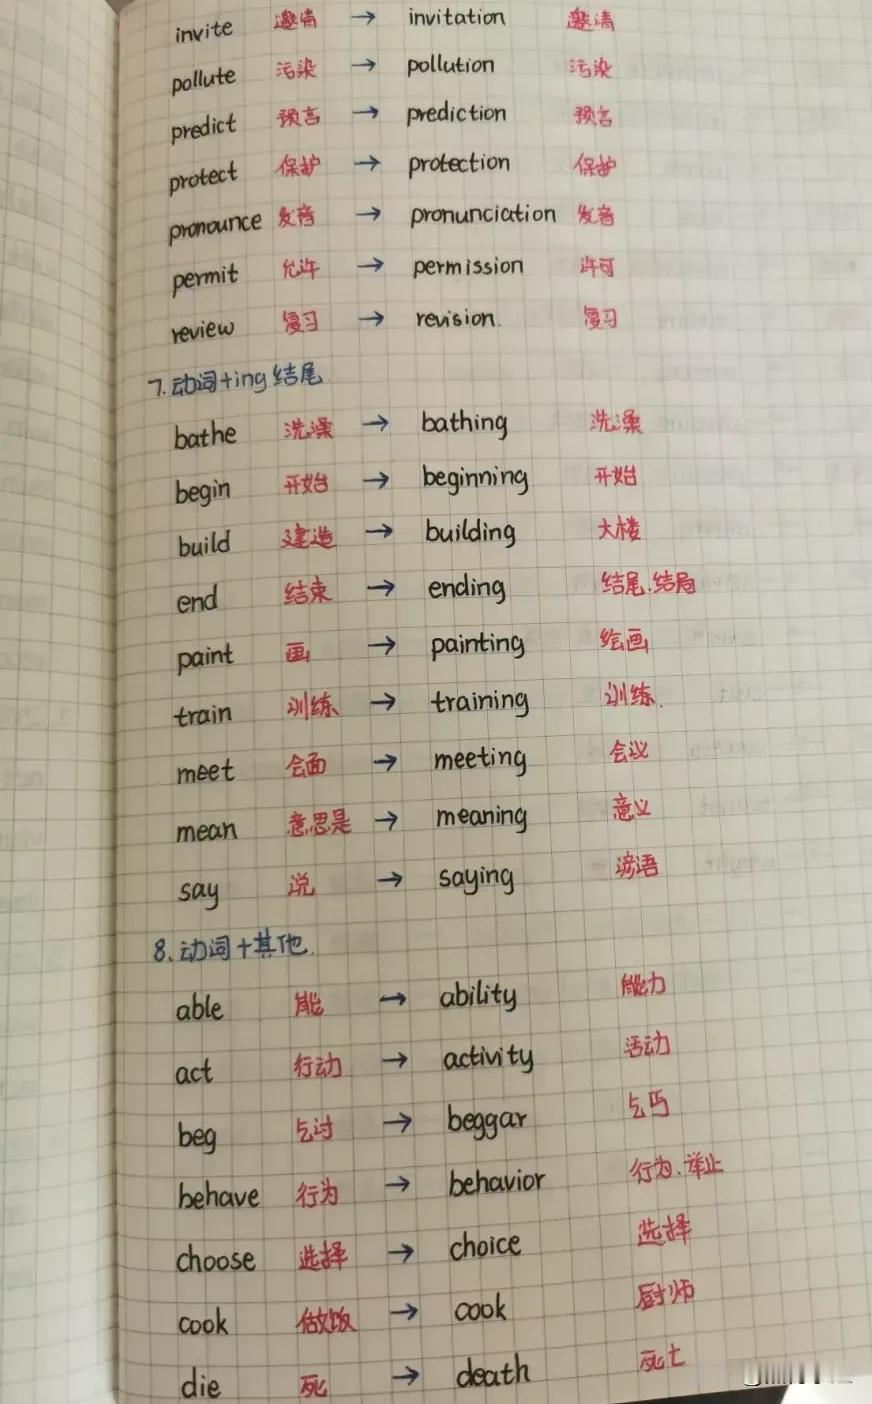 invite 邀请 → invitation 邀请
pollute 污染 → pollution 污染
predict 预言 → prediction 预言
protect 保护 → protection 保护
pronounce 发音 → pronunciation 发音
permit 允许 → permission 许可
review 复习 → revision. 复习
7. 动词+ing 结尾
bathe 洗澡 → bathing 洗澡
begin 开始 → beginning 开始
build 建造 → building 大楼
end 结束 → ending 结尾.结局
paint 画 → painting 绘画
train 训练 → training 训练.
meet 会面 → meeting 会议
mean 意思是 → meaning 意义
say 说 → saying 谚语
8. 动词+其他.
able 能 → ability 能力
act 行动 → activity 活动
beg 乞讨 → beggar 乞丐
behave 行为 → behavior 行为.举止
choose 选择 → choice 选择
cook 做饭 → cook 厨师
die 死 → death 死亡